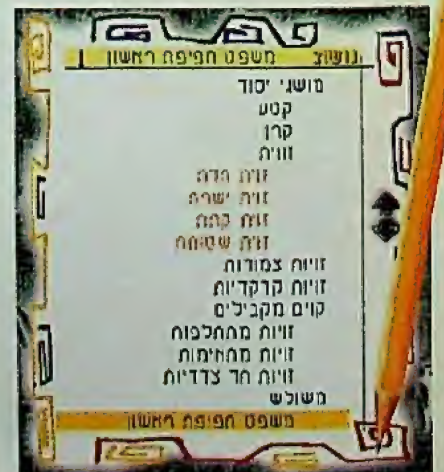 נושא: משפט חפיפה ראשון
מושגי יסוד
קטע
קרן
זווית
זוית חדה
זוית ישרה
זוית קהה
זוית שטוחה
זויות צמודות
זויות קדקדיות
קוים מקבילים
זויות מתחלפות
זויות מתאימות
זויות חד צדדיות
משולש
משפט חפיפה ראשון